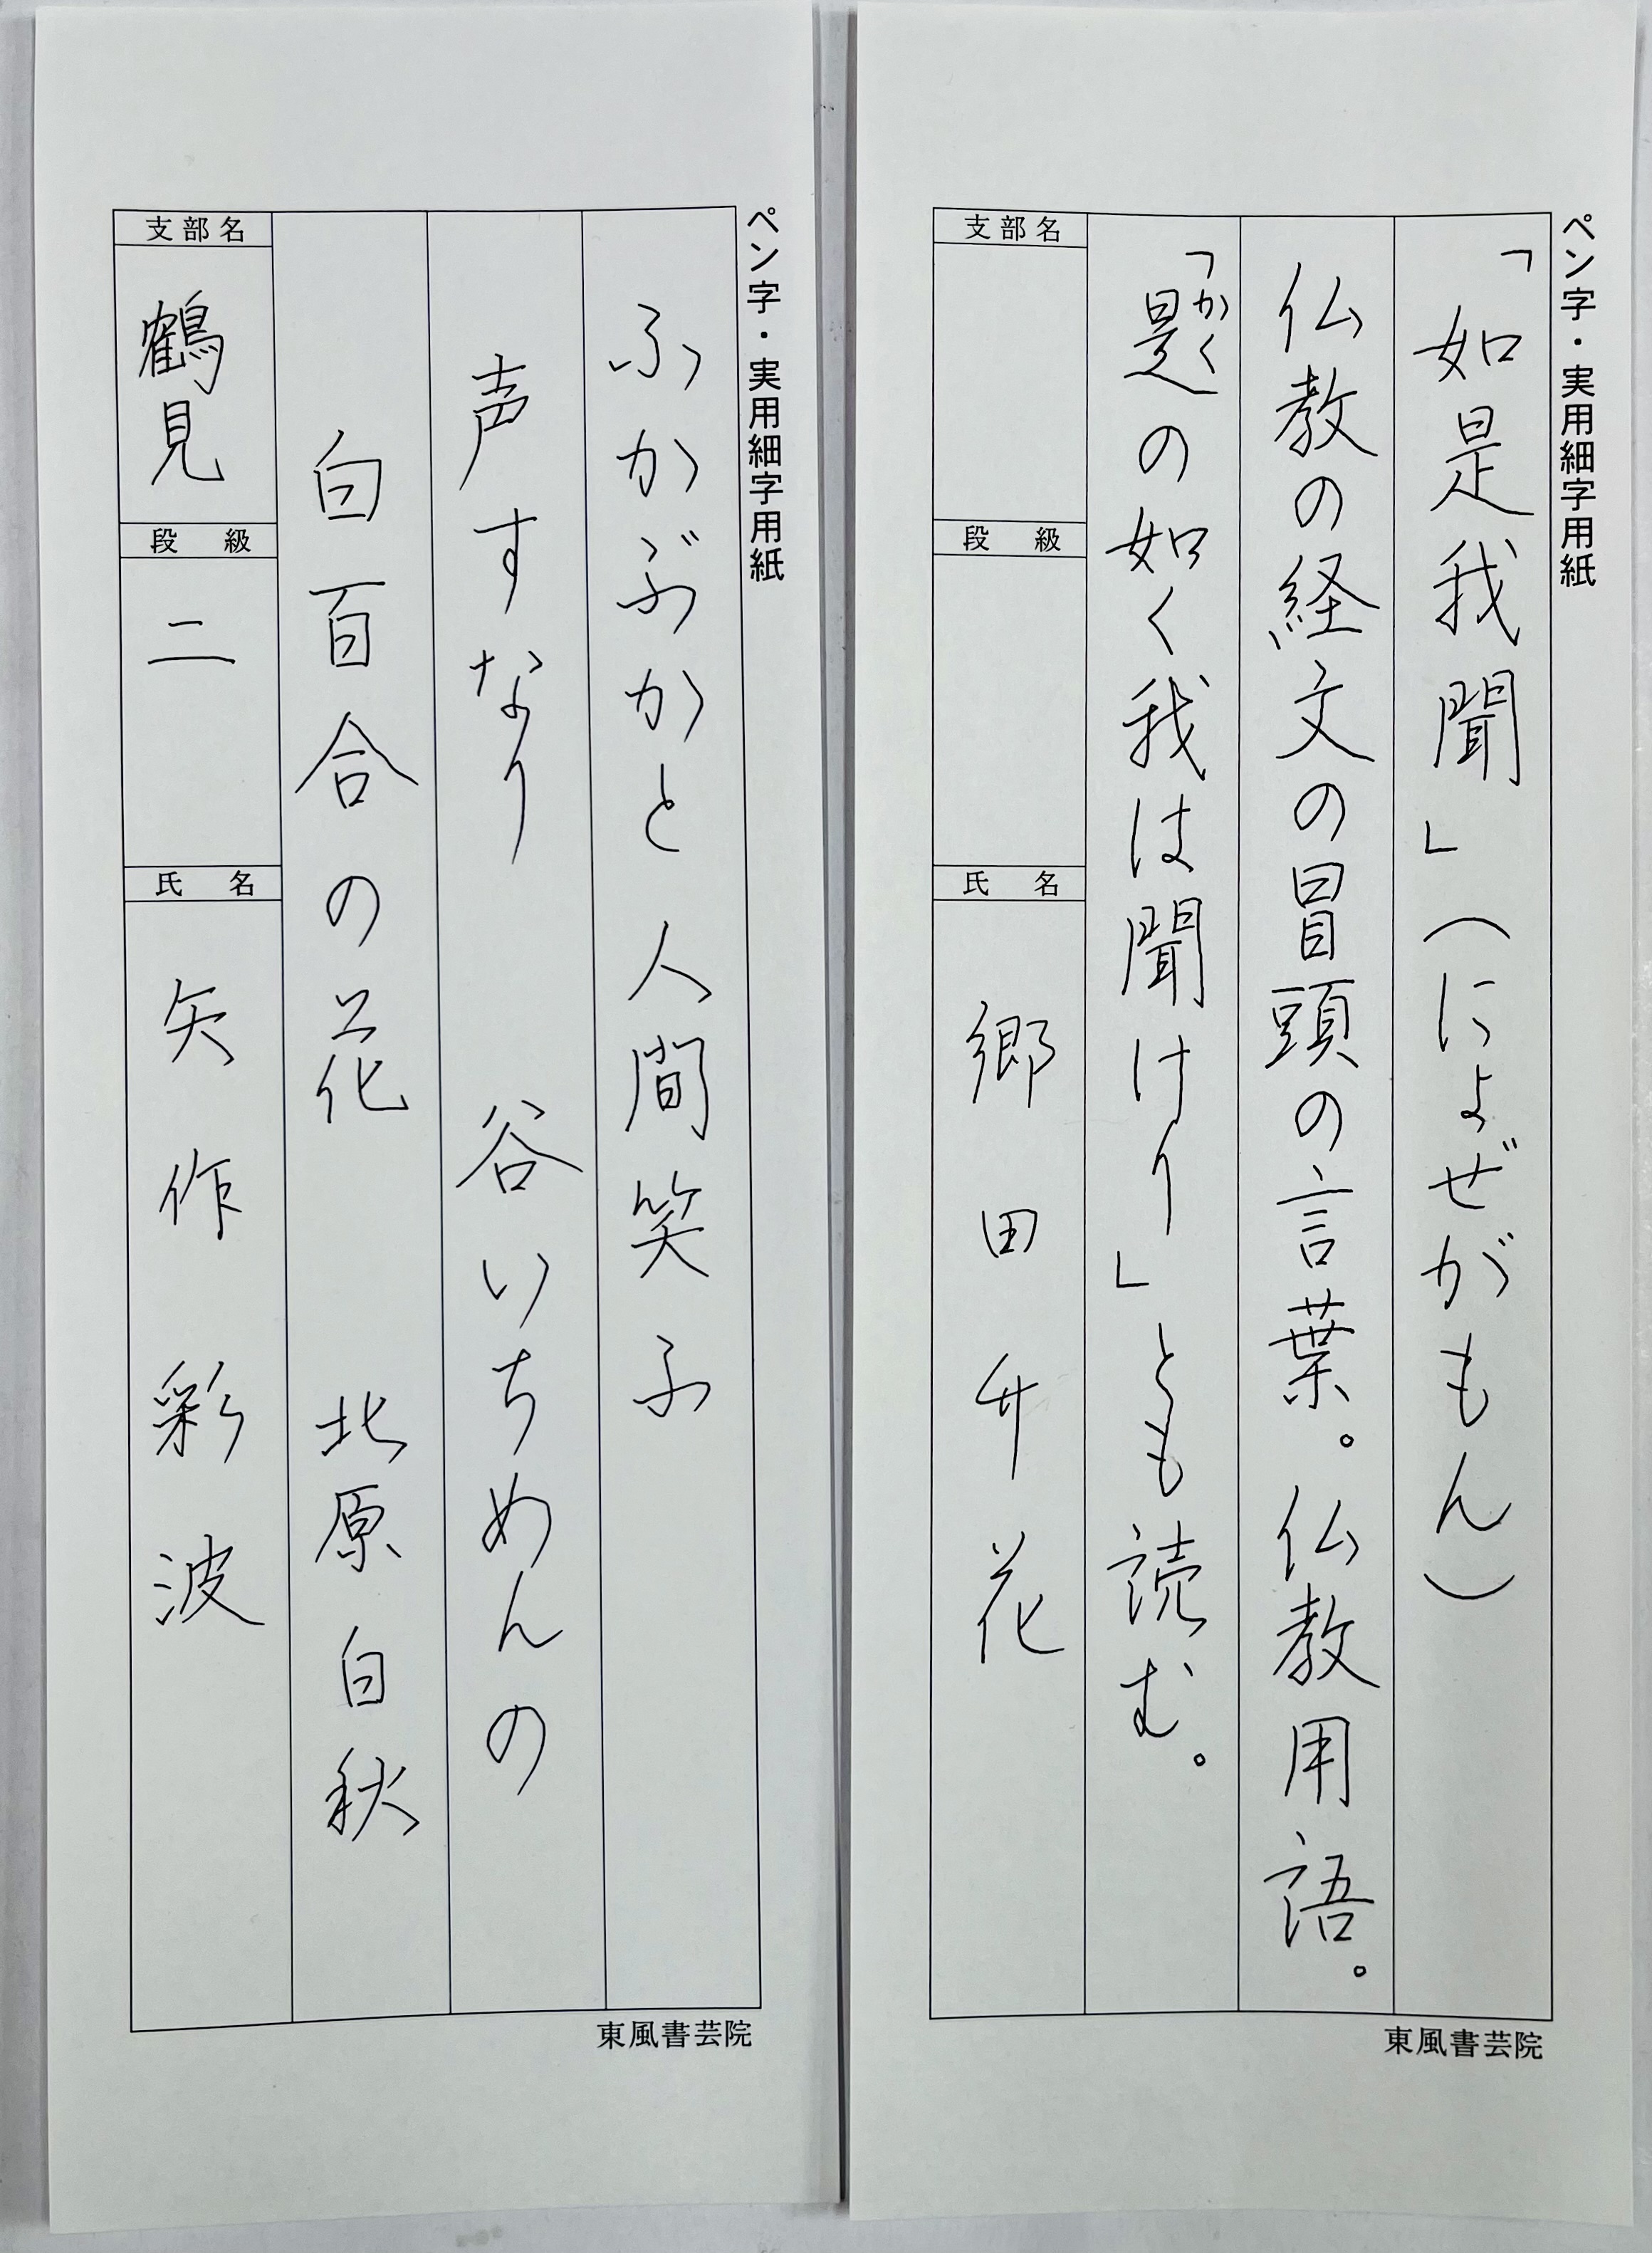 ペン字・実用細字用紙
「如是我聞」（にょぜがもん）
仏教の経文の冒頭の言葉。仏教用語。
かく
「是の如く我は聞けり」とも読む。
支部名
段級
氏名
郷田升花
東風書芸院
ペン字・実用細字用紙
ふかぶかと人間笑ふ
声すなり 谷いちめんの
白百合の花 北原白秋
支部名
鶴見
段級
二
氏名
矢作彩波
東風書芸院